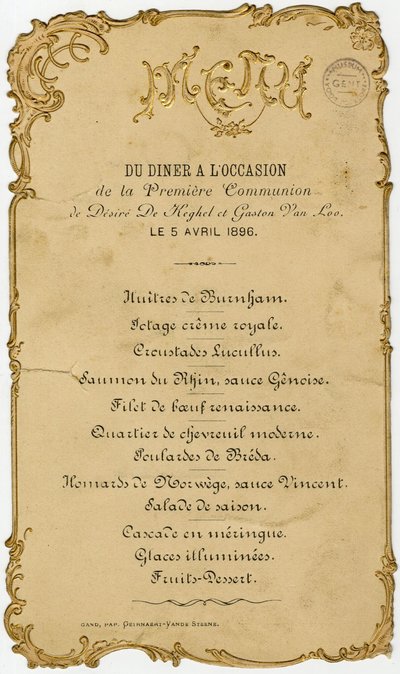 MENU
MUSEUM
GENT
DU DINER A L'OCCASION
de la Première Communion
de Désiré De Keghel et Gaston Van Loo.
LE 5 AVRIL 1896.
Huîtres de Burnham.
Potage crême royale.
Croustades Lucullus.
Saumon du Rhin, sauce Gênoise.
Filet de bœuf renaissance.
Quartier de chevreuil moderne.
Poulardes de Bréda.
Homards de Norwège, sauce Vincent.
Salade de saison.
Cascade en méringue.
Glaces illuminées.
Fruits-Dessert.
GAND, PAP. GEIRNAERT-VANDE STEENE.